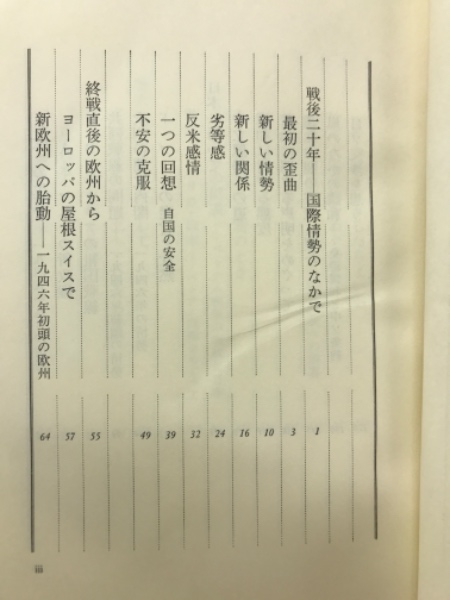 戦後二十年――国際情勢のなかで 1
最初の歪曲 3
新しい情勢 10
新しい関係 16
劣等感 24
反米感情 32
一つの回想 自国の安全 39
不安の克服 49
終戦直後の欧州から 55
ヨーロッパの屋根スイスで 57
新欧州への胎動――一九四六年初頭の欧州 64
iii